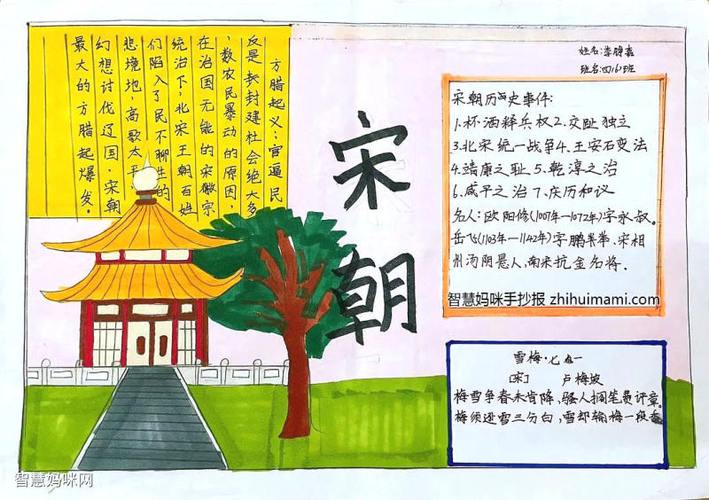 方腊起义:官逼民
反是封建社会绝大多
数农民暴动的原因,
在治国无能的宋徽宗
统治下,北宋王朝百姓
们陷入了民不聊生的
悲境地,高歌太平
幻想讨伐辽国,宋朝
最大的方腊起爆发。
宋朝
姓名:李
班名:四(6)班
宋朝历史事件:
1.杯酒释兵权 2.交趾独立
3.北宋统一战争4.王安石变法
4.靖康之耻 5.乾淳之治
6.咸平之治 7.庆历和议
名人:欧阳修(1007年-1072年)字永叔。
岳飞(1103年-1142年)字鹏举,宋相
州汤阴县人,南宋抗金名将。
智慧妈咪手抄报 zhihuimami.com
雪梅·其一
[宋] 卢梅坡
梅雪争春未肯降,骚人搁笔费评章。
梅须逊雪三分白,雪却输梅一段香
智慧妈咪网